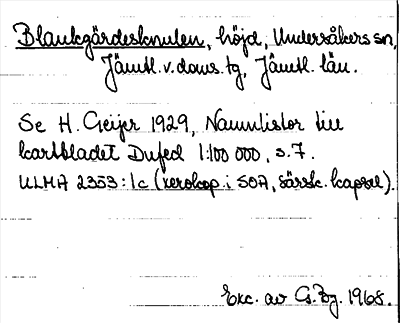 Blankgärdesknulen, höjd, Undersåkers sn,
Jämtl. v. doms. tg, Jämtl. län.
Se H. Geijer 1929, Namnlistor till
kartbladet Dufed 1:100 000, s. 7.
ULMA 2353:1c (xerokop. i SOA, särsk. kapsel).
Exc. av G. Bg. 1968.